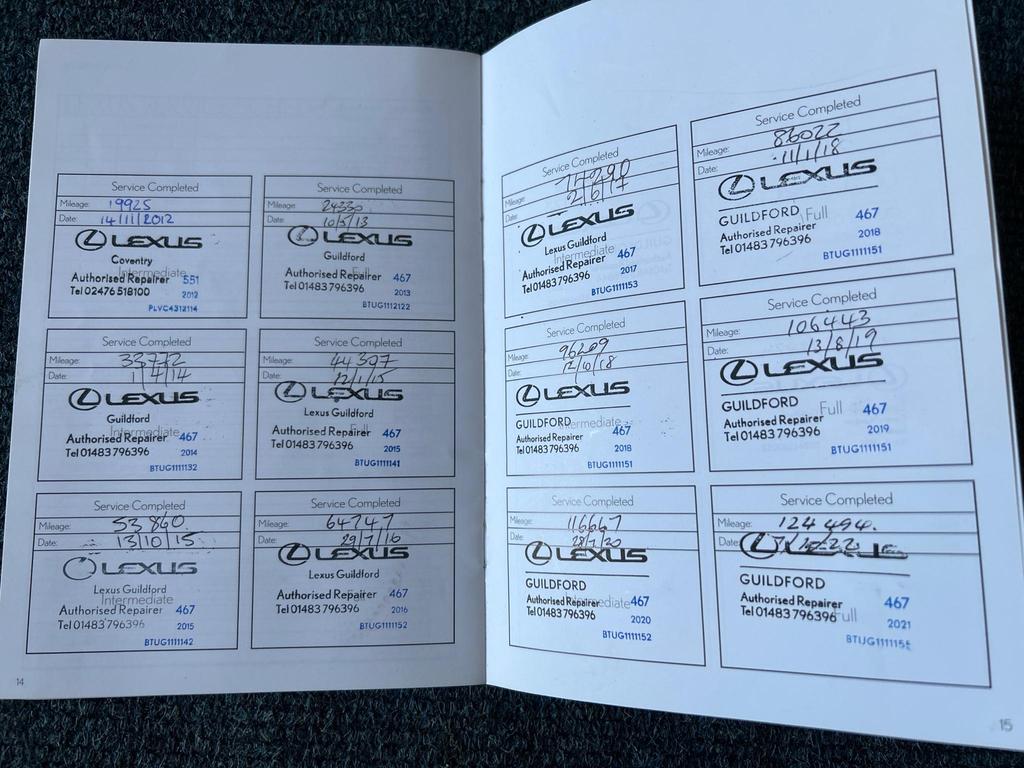 Service Completed
Mileage: 19925
Date: 14/11/2012
LEXUS
Coventry
Intermediate
Authorised Repairer 551
Tel 02476 518100 2012
PLVC4312114
Service Completed
Mileage: 24330
Date: 10/5/13
LEXUS
Guildford
Full
Authorised Repairer 467
Tel 01483 796396 2013
BTUG1112122
Service Completed
Mileage: 33772
Date: 1/4/14
LEXUS
Guildford
Intermediate
Authorised Repairer 467
Tel 01483 796396 2014
BTUG1111132
Service Completed
Mileage: 44397
Date: 12/1/15
LEXUS
Lexus Guildford
Full
Authorised Repairer 467
Tel 01483 796396 2015
BTUG1111141
Service Completed
Mileage: 53,860
Date: 13/10/15
LEXUS
Lexus Guildford
Intermediate
Authorised Repairer 467
Tel 01483 796396 2015
BTUG1111142
Service Completed
Mileage: 64747
Date: 29/7/16
LEXUS
Lexus Guildford
Full
Authorised Repairer 467
Tel 01483 796396 2016
BTUG1111152
14
Service Completed
Mileage:
Date:
LEXUS
Lexus Guildford
Authorised Repairer 467
Tel 01483 796396 2017
BTUG1111153
Service Completed
Mileage: 86022
Date: 11/1/18
LEXUS
GUILDFORD Full 467
Authorised Repairer
Tel 01483 796396 2018
BTUG1111151
Service Completed
Mileage: 96209
Date: 12/10/18
LEXUS
GUILDFORD Intermediate
Authorised Repairer 467
Tel 01483 796396 2018
BTUG1111151
Service Completed
Mileage: 106443
Date: 13/8/19
LEXUS
GUILDFORD Full
Authorised Repairer 467
Tel 01483 796396 2019
BTUG1111151
Service Completed
Mileage: 116667
Date: 28/7/20
LEXUS
GUILDFORD
Authorised Repairer Intermediate 467
Tel 01483 796396 2020
BTUG1111152
Service Completed
Mileage: 124 494.
Date:
LEXUS
GUILDFORD
Authorised Repairer 467
Tel 01483 796396 Full 2021
15